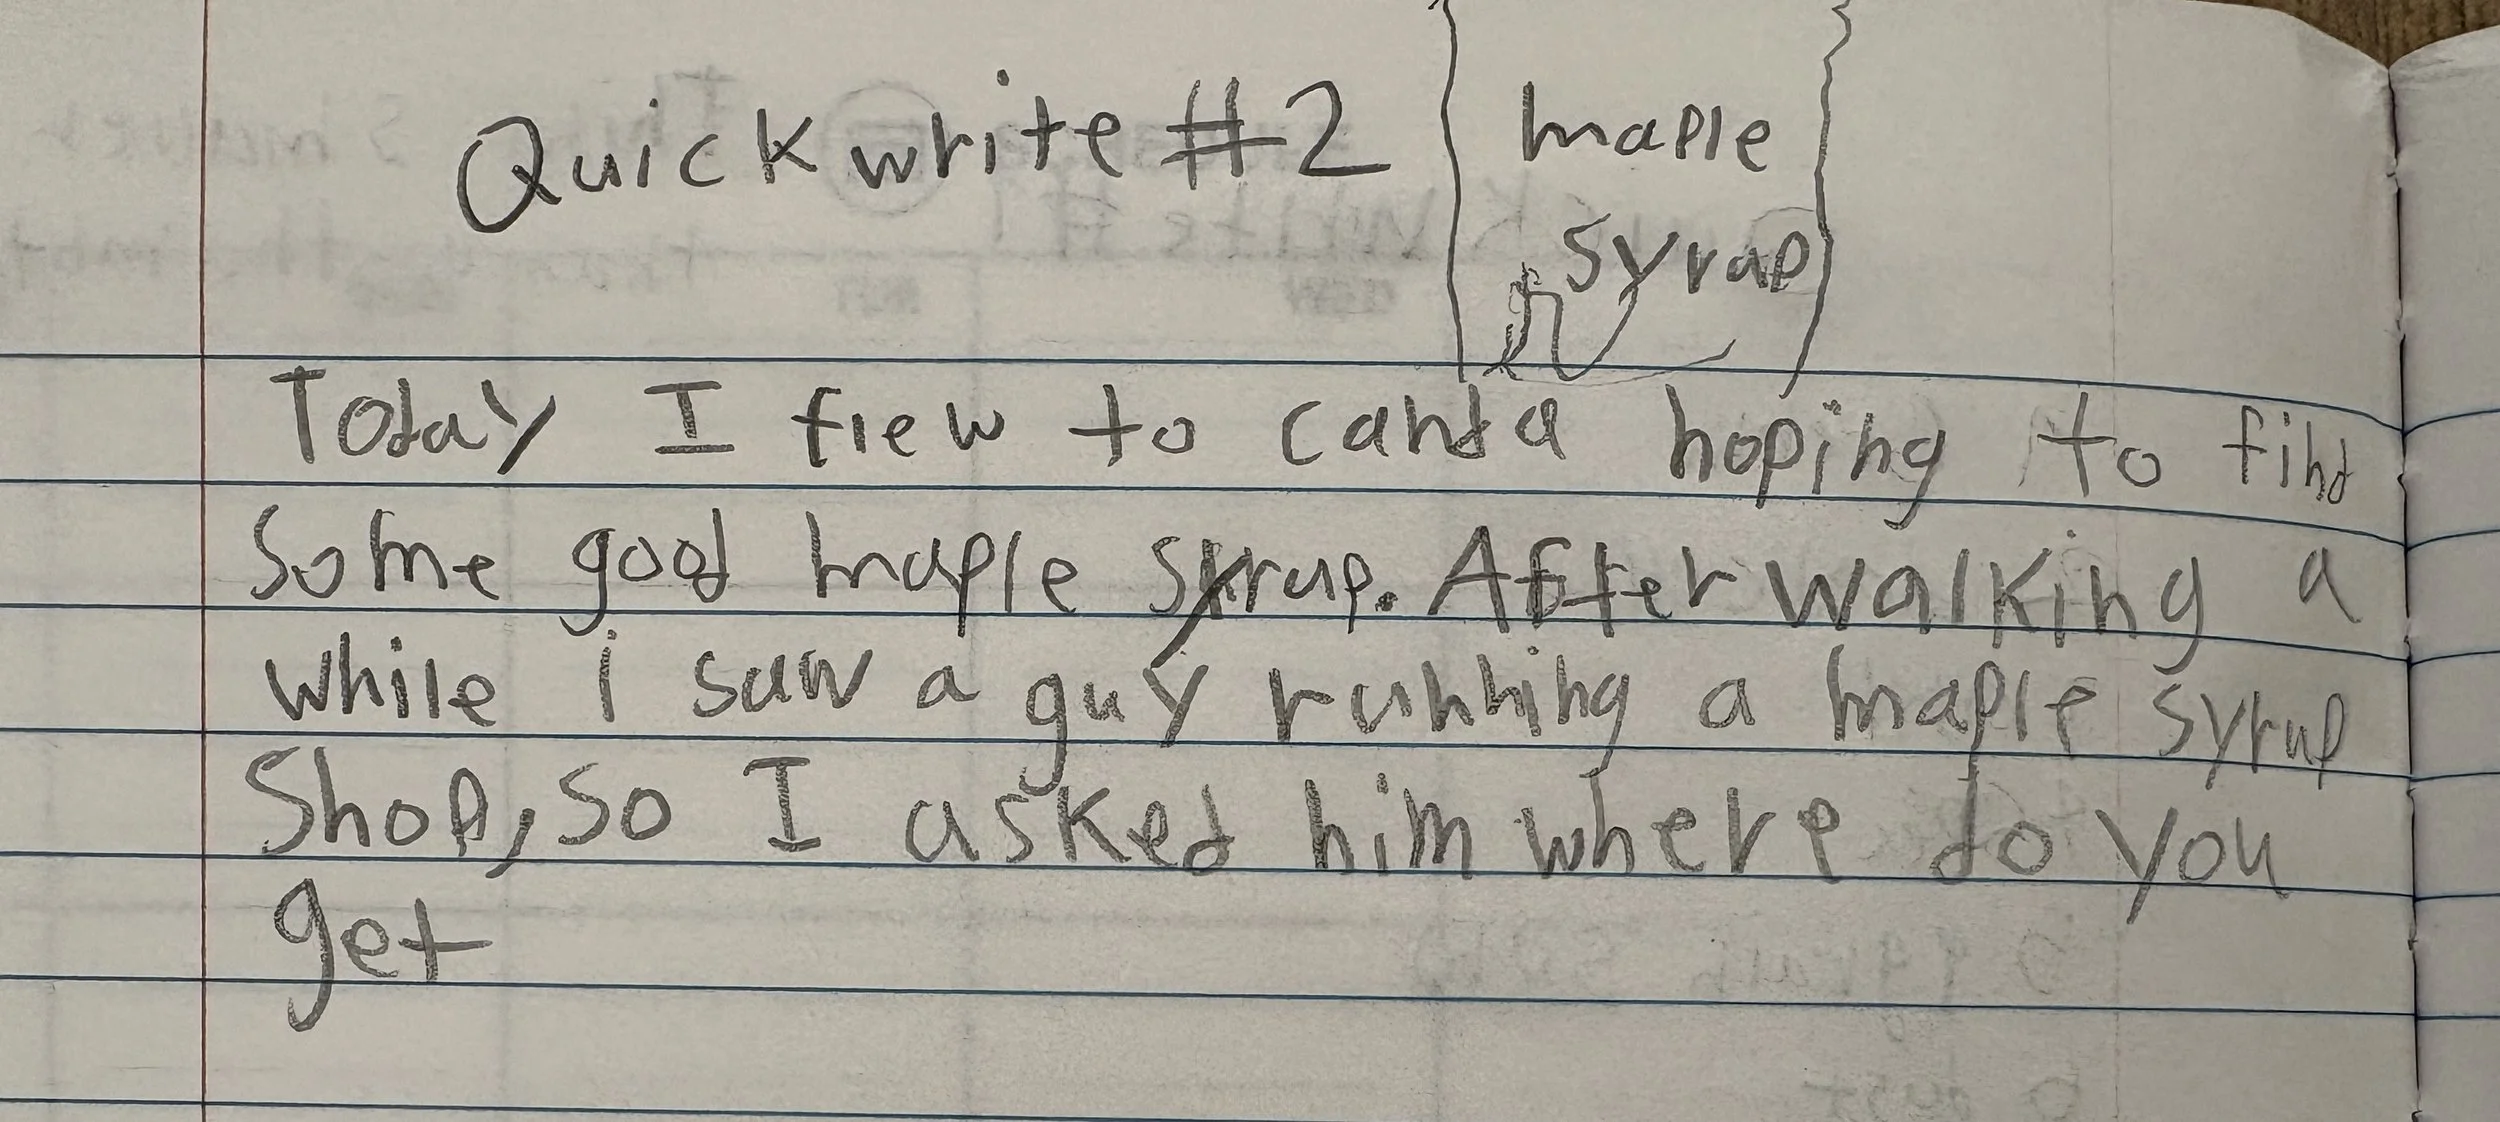 Quick write #2
maple
syrup
Today I flew to canda hoping to find
Some good maple syrup. After walking a
while i saw a guy running a maple syrup
Shop, so I asked him where do you
get